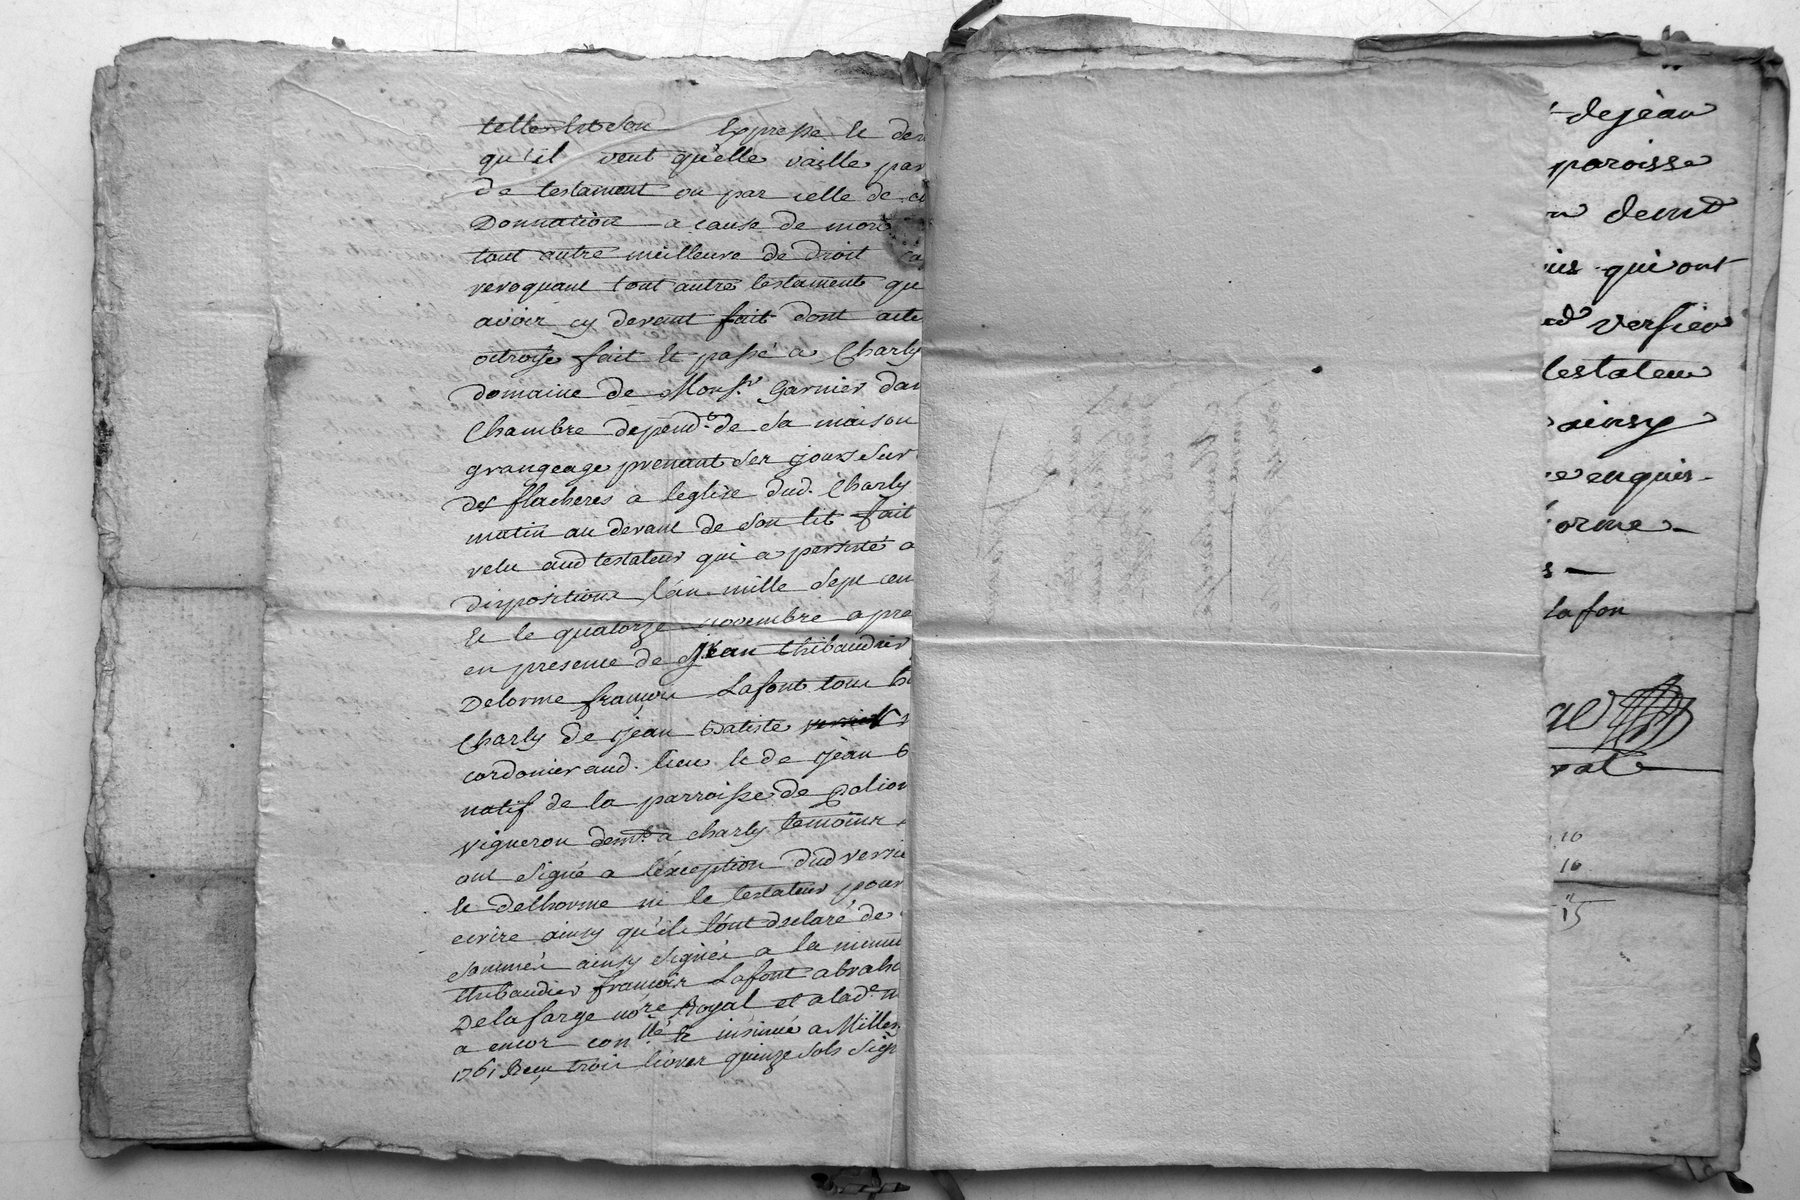 telle est son expresse et der
qu'il veut qu'elle vaille par
de testament ou par celle de co
Donnation a cause de mort
tout autre meilleure de droit ca
revoquant tout autre testament qu
avoir cy devant fait dont acte
octroyé fait et passé a Charly
domaine de Monsr. Garnier dan
Chambre depend.te de sa maison
grangeage prenant ses jours sur
des flacheres a leglise dud. Charly
matin au devant de son lit fait
relu aud testateur qui a persisté a
dispositions l'an mille sept cen
et le quatorze novembre apre
en presence de sr jean thibaudier
Delorme françois Lafont tous h
Charly de jean batiste
cordonier aud. lieu et de jean b
natif de la parroisse de Golion
vigneron demt. a charly temoins
ont signé a l'exception dud versie
et delhorme ni le testateur pour
ecrire ainsy qu'ils l'ont declaré de
sommés ainsy signés a la minu
thibaudier françois Lafont abraha
Delafarge nore Royal et a lad.e m
a encor con.llé et insinué a Millery
1761 Reçu trois livres quinze sols sig
dejean
paroisse
demt
qui ont
versieu
testateur
ainsy
enquis-
forme
lafon
val
10
16
15